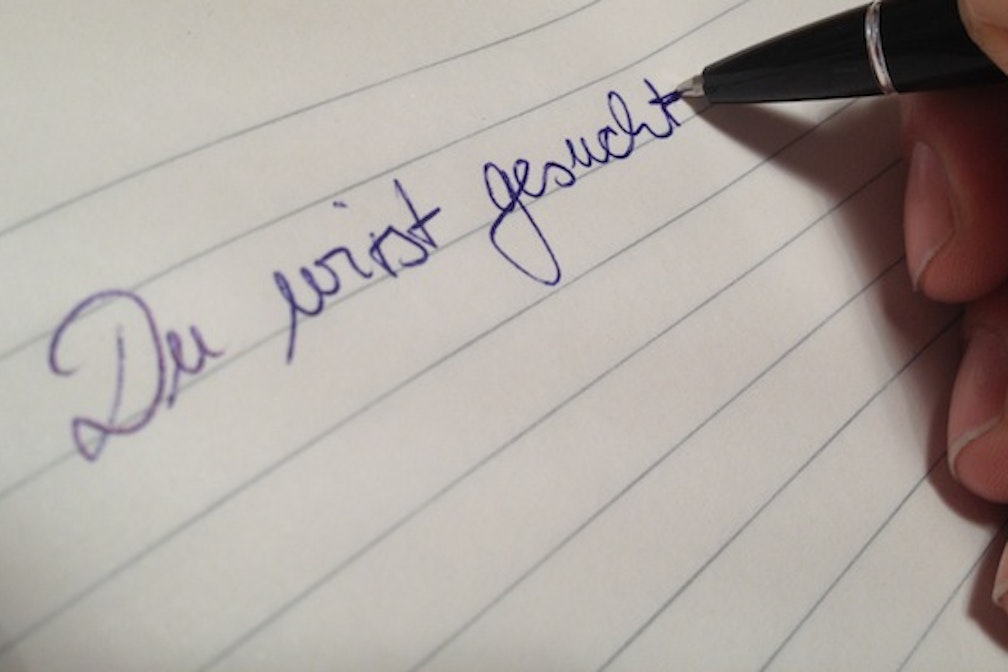 Du wirst gesucht